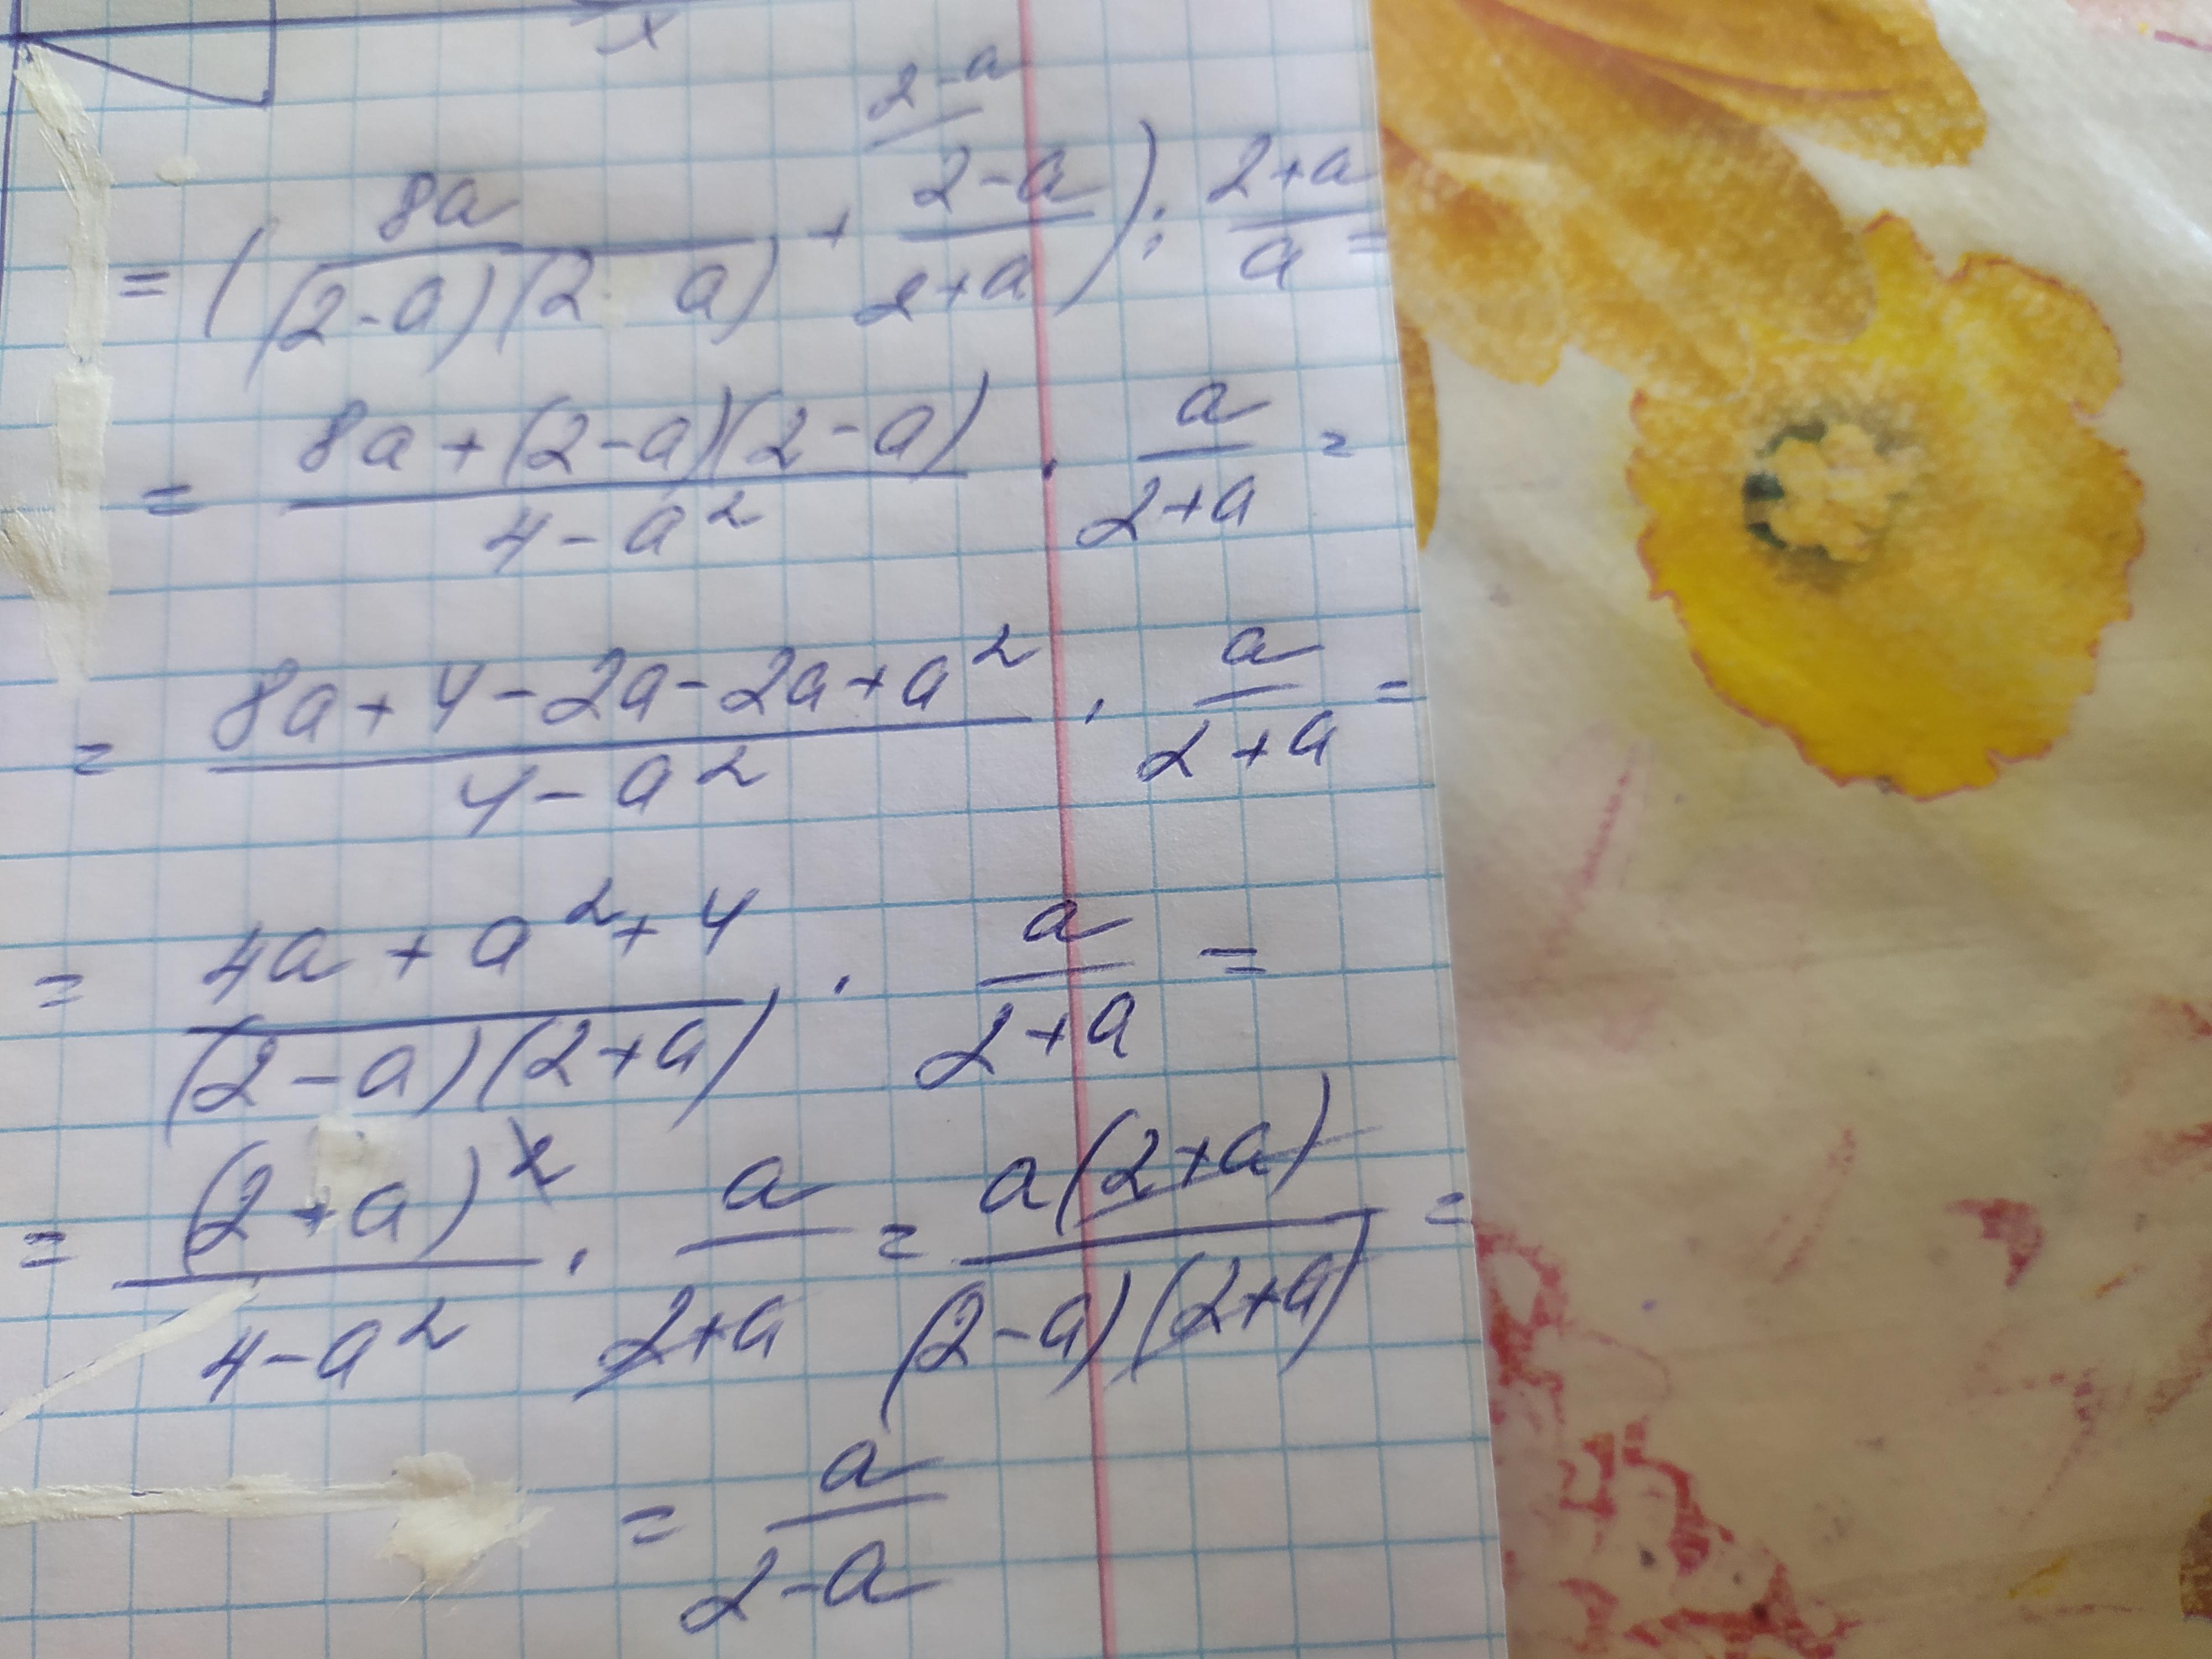 x
2-a
= ( 8a / (2-a)(2 a) + 2-a / 2+a ) : 2+a / a =
= 8a+(2-a)(2-a) / 4-a² · a / 2+a =
= 8a+4-2a-2a+a² / 4-a² · a / 2+a =
= 4a+a²+4 / (2-a)(2+a) · a / 2+a =
= (2+a)² / 4-a² · a / 2+a = a(2+a) / (2-a)(2+a) =
= a / 2-a